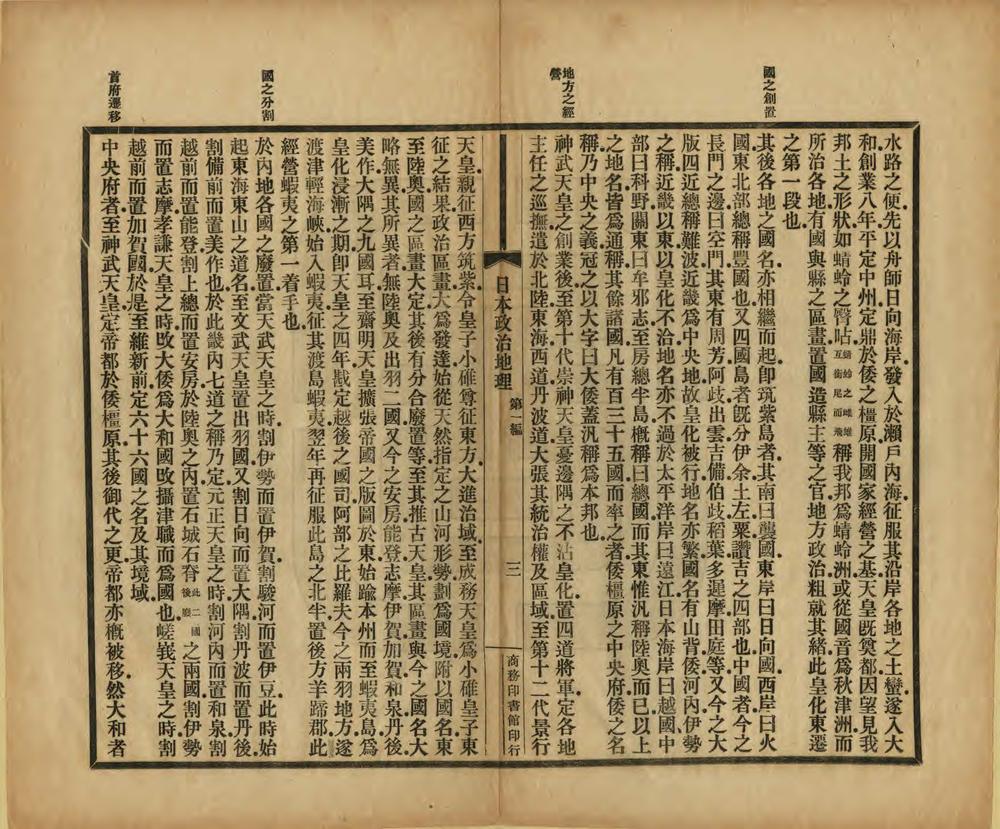 國之創置
地方之經營
水路之便先以舟師日向海岸發入於瀨戶內海征服其沿岸各地之土蠻遂入大
和創業八年平定中州定鼎於倭之橿原開國家經營之基天皇既奠都因望見我
邦土之形狀如蜻蛉之臀呫蜻蛉之雌雄互銜尾而飛稱我邦爲蜻蛉洲或從國音爲秋津洲而
所治各地有國與縣之區畫置國造縣主等之官地方政治粗就其緒此皇化東遷
之第一段也
其後各地之國名亦相繼而起卽筑紫島者其南曰襲國東岸曰日向國西岸曰火
國東北部總稱豐國也又四國島者旣分伊余土左粟讚吉之四部也中國者今之
長門之邊曰空門其東有周芳阿歧出雲吉備伯歧稻葉多遲摩田庭等又今之大
版四近總稱難波近畿爲中央地故皇化被行地名亦繁國名有山背倭河內伊勢
之稱近畿以東以皇化不洽地名亦不過於太平洋岸曰遠江日本海岸曰越國中
部曰科野關東曰牟邪志至房總半島槪稱曰總國而其東惟汎稱陸奧而已以上
之地名皆爲通稱其餘諸國凡有百三十五國而率之者倭橿原之中央府倭之名
稱乃中央之義冠之以大字曰大倭蓋汎稱爲本邦也
神武天皇之創業後至第十代崇神天皇憂邊隅之不沾皇化置四道將軍定各地
主任之巡撫遣於北陸東海西道丹波道大張其統治權及區域至第十二代景行
日本政治地理 第一編 三 商務印書館印行
國之分割
首府遷移
天皇親征西方筑紫令皇子小碓尊征東方大進治域至成務天皇爲小碓皇子東
征之結果政治區畫大爲發達始從天然指定之山河形勢劃爲國境附以國名東
至陸奧國之區畫大定其後有分合廢置等至其推古天皇其區畫與今之國名大
略無異其所異者無陸奧及出羽二國又今之安房能登志摩伊賀加賀和泉丹後
美作大隅之九國耳至齋明天皇擴張帝國之版圖於東始踰本州而至蝦夷島爲
皇化浸漸之期卽天皇之四年戡定越後之國司阿部之比羅夫今之兩羽地方遂
渡津輕海峽始入蝦夷征其渡島蝦夷翌年再征服此島之北半置後方羊蹄郡此
經營蝦夷之第一着手也
於內地各國之廢置當天武天皇之時割伊勢而置伊賀割駿河而置伊豆此時始
起東海東山之道名至文武天皇置出羽國又割日向而置大隅割丹波而置丹後
割備前而置美作也於此畿內七道之稱乃定元正天皇之時割河內而置和泉割
越前而置能登割上總而置安房於陸奧之內置石城石脊此二國後廢之兩國割伊勢
而置志摩孝謙天皇之時改大倭爲大和國改攝津職而爲國也嵯峩天皇之時割
越前而置加賀國於是至維新前定六十六國之名及其境域
中央府者至神武天皇定帝都於倭橿原其後御代之更帝都亦槪被移然大和者